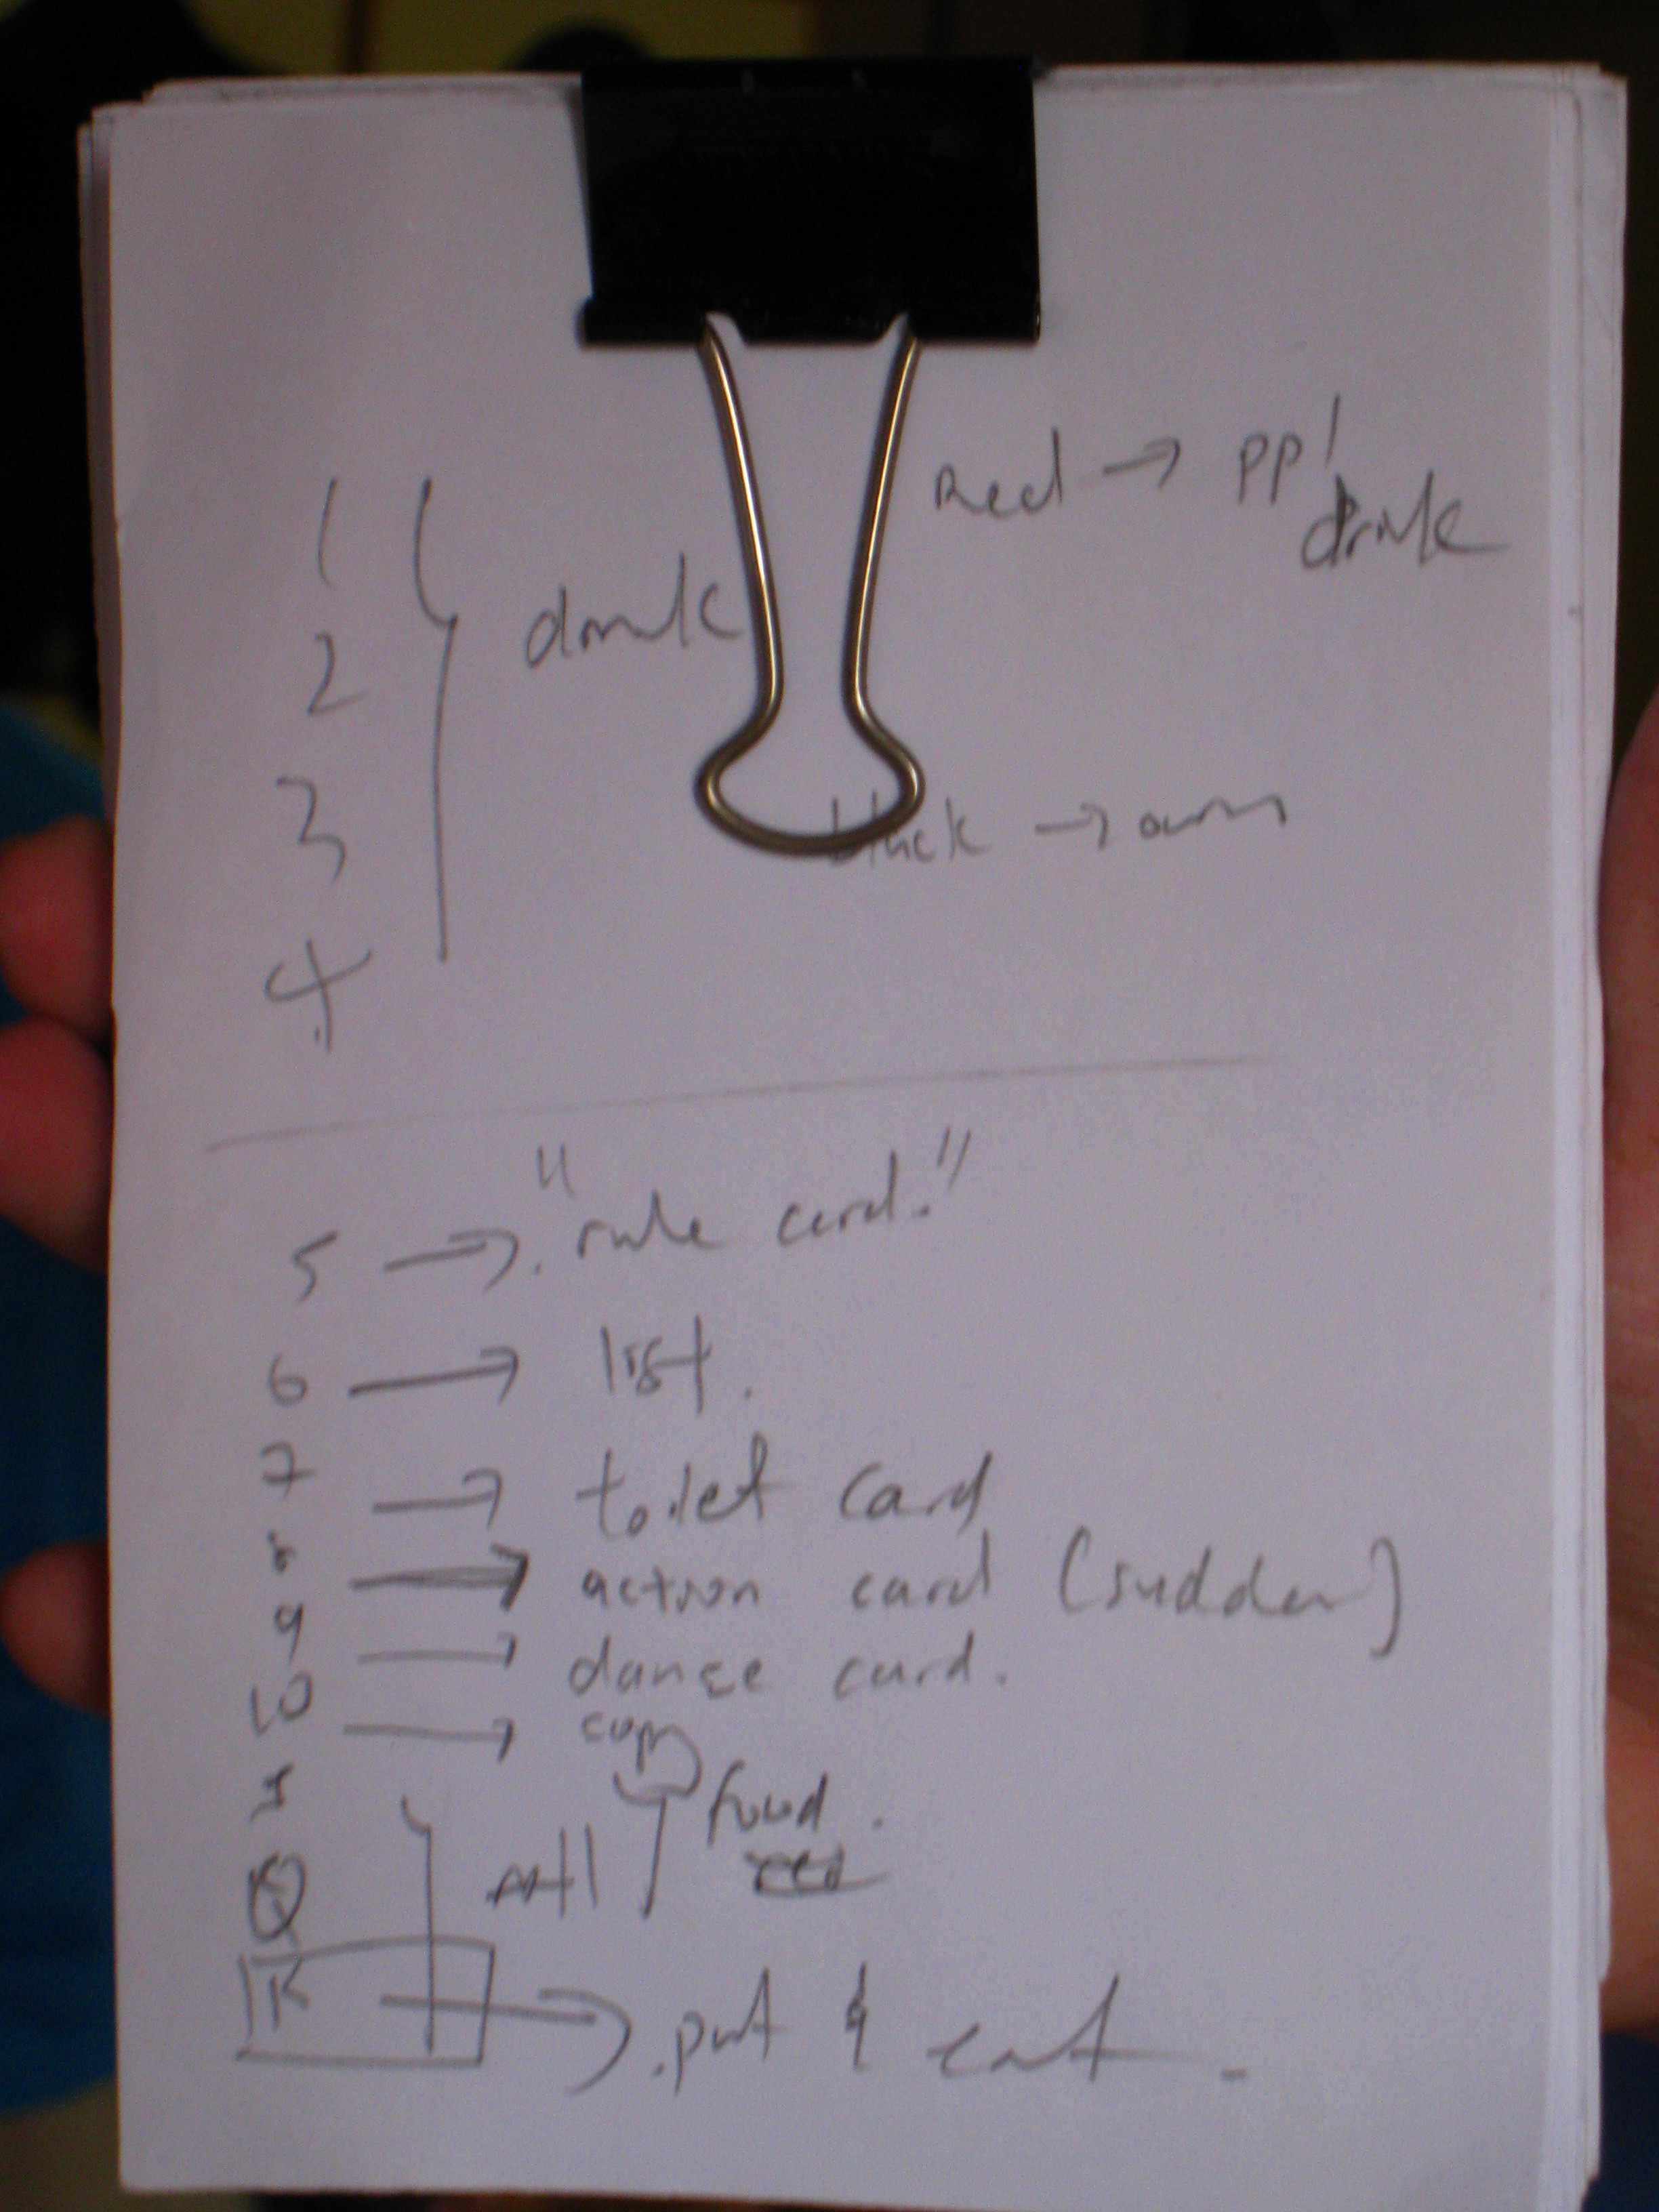 Red → ppl drink
1
2
drink
3
black → own
4
5 → "rule card."
6 → list.
7 → toilet card
8 → action card (sudden)
9 → dance card.
10 → cup
J
food.
Q
K → put & eat.